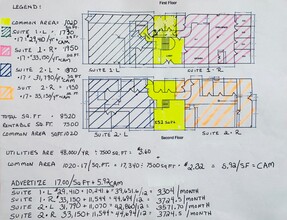 First Floor
LEGEND:
COMMON AREAS 1020
SUITE 1-L = 1730
·17 = 29,410/yr + CAM
SUITE 1-R = 1950
·17 = 33,150/yr + CAM
SUITE 2-L = 1870
·17 = 31,790/yr + CAM
SUITE 2-R = 1950
·17 = 33,150/yr + CAM
SUITE 1-L
SUITE 1-R
Second Floor
SUITE 2-L
SUITE 2-R
TOTAL SQ. FT - 8520
RENTABLE SQ. FT 7500
COMMON AREA SQFT. 1020
UTILITIES ARE 48,000/YR ÷ 7500 SQ FT $3.60
COMMON AREA 1020·17/SQ. FT. = 17,340 ÷ 7500 SQ FT $2.32 = 5.92/SF = CAM
ADVERTIZE 17.00/SQ FT + 5.92 CAM
SUITE 1-L $29,410 + 10,241 = 39,651.6/12 = 3304/MONTH
SUITE 1-R $33,150 + 11,544 = 44,694/12 = 3724.5/MONTH
SUITE 2-L 31,790 + 11,070 = 42,860/12 = 3571.70/MONTH
SUITE 2-R 33,150 + 11,544 = 44,694/12 = 3724.5/MONTH